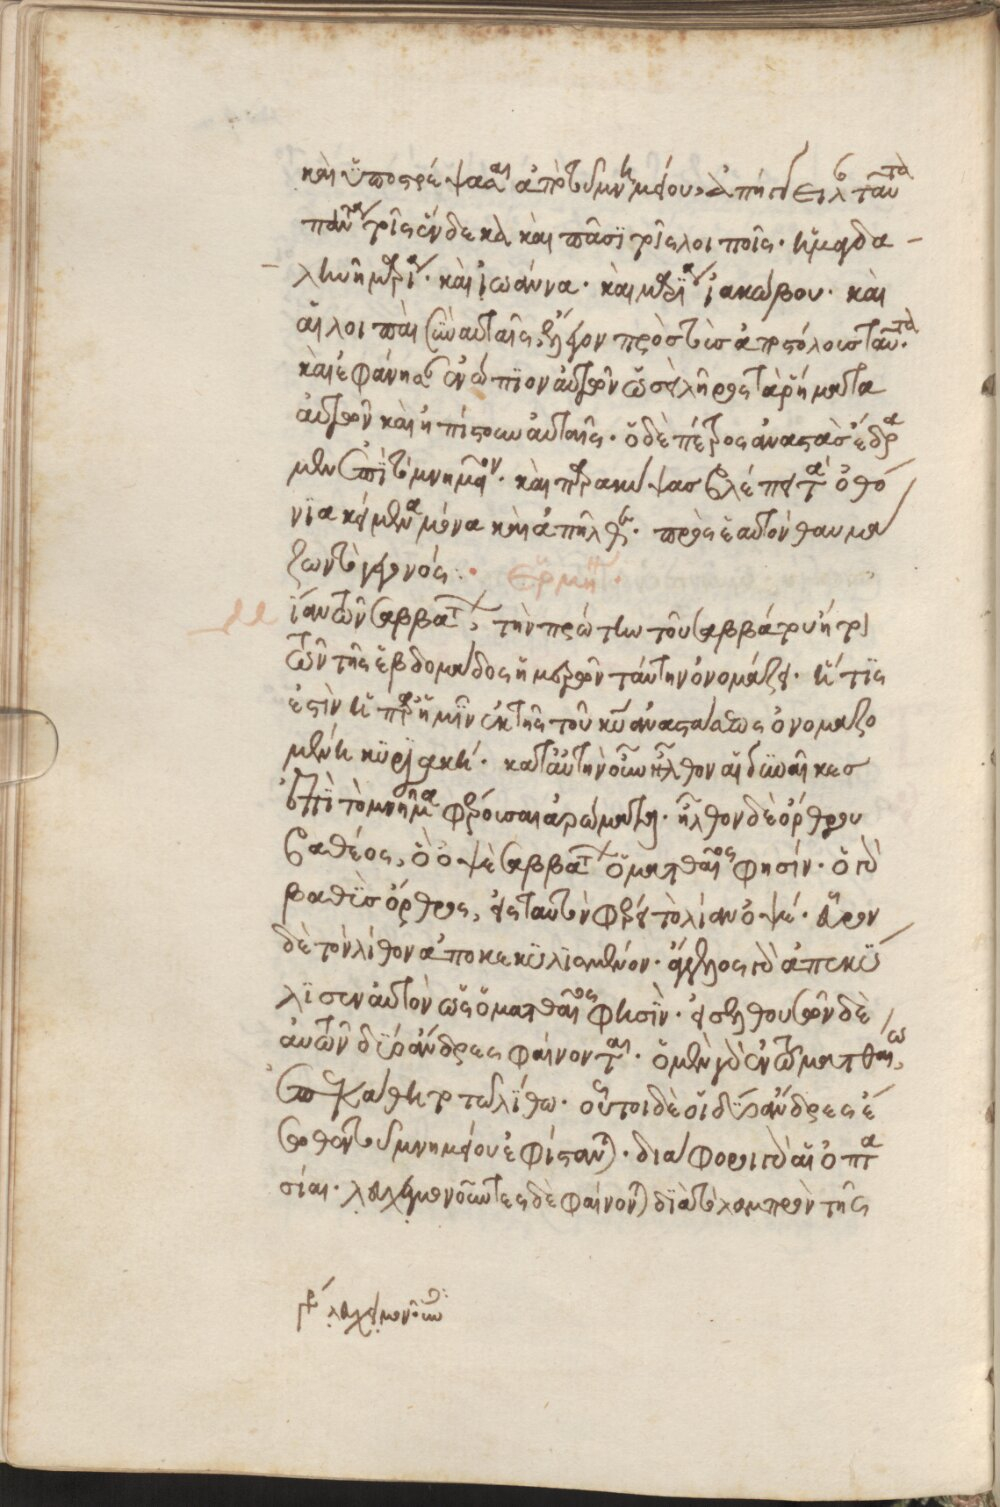 καὶ ὑποστρέψασαι ἀπὸ τοῦ μνημείου, ἀπήγγειλαν ταῦτα
πάντα τοῖς ἕνδεκα καὶ πᾶσι τοῖς λοιποῖς· ἡ μαγδα
ληνὴ μαρία· καὶ ἰωάννα· καὶ μαρία ἰακώβου· καὶ
αἱ λοιπαὶ σὺν αὐταῖς, ἔλεγον πρὸς τοὺς ἀποστόλους ταῦτα·
καὶ ἐφάνησαν ἐνώπιον αὐτῶν ὡσεὶ λῆρος τὰ ῥήματα
αὐτῶν καὶ ἠπίστουν αὐταῖς· ὁ δὲ πέτρος ἀναστὰς ἔδρα
μεν ἐπὶ τὸ μνημεῖον· καὶ παρακύψας βλέπει τὰ ὀθό
νια κείμενα μόνα καὶ ἀπῆλθε· πρὸς ἑαυτὸν θαυμά
ζων τὸ γεγονός· Ἑρμηνεία·
μίαν τῶν σαββάτων, τὴν πρώτην τοῦ σαββάτου ἤτοι
τῶν τῆς ἑβδομάδος ἡμερῶν ταύτην ὀνομάζει· ἥτις
ἐστὶν ἡ παρ' ἡμῖν ἐκ τῆς τοῦ κυ ἀναστάσεως ὀνομαζο
μένη κυριακή· κατ' αὐτὴν οὖν ἦλθον αἱ γυναῖκες
ἐπὶ τὸ μνῆμα φέρουσαι ἀρώματα· ἦλθον δὲ ὄρθρου
βαθέος, ὃ ὀψὲ σαββάτων ὁ ματθαῖος φησίν· ὁ γὰρ
βαθὺς ὄρθρος, εἰς ταυτὸν φέρει τὸ λίαν ὀψέ· εὗρον
δὲ τὸν λίθον ἀποκεκυλισμένον· ἄγγελος γὰρ ἀπεκύ
λισεν αὐτὸν ὡς ὁ ματθαῖος φησίν· εἰσελθουσῶν δὲ
αὐτῶν δύο ἄνδρες φαίνονται· ὁ μὲν γὰρ ἐν τῶ ματθαίω,
ἐπεκάθητο τῶ λίθω· οὗτοι δὲ οἱ δύο ἄνδρες ἔ
σωθεν τοῦ μνημείου ἐφίστανται· διάφοροι γὰρ αἱ ὀπτα
σίαι· λαχημονοῦντες δὲ φαίνονται διὰ τὸ λαμπρὸν τῆς